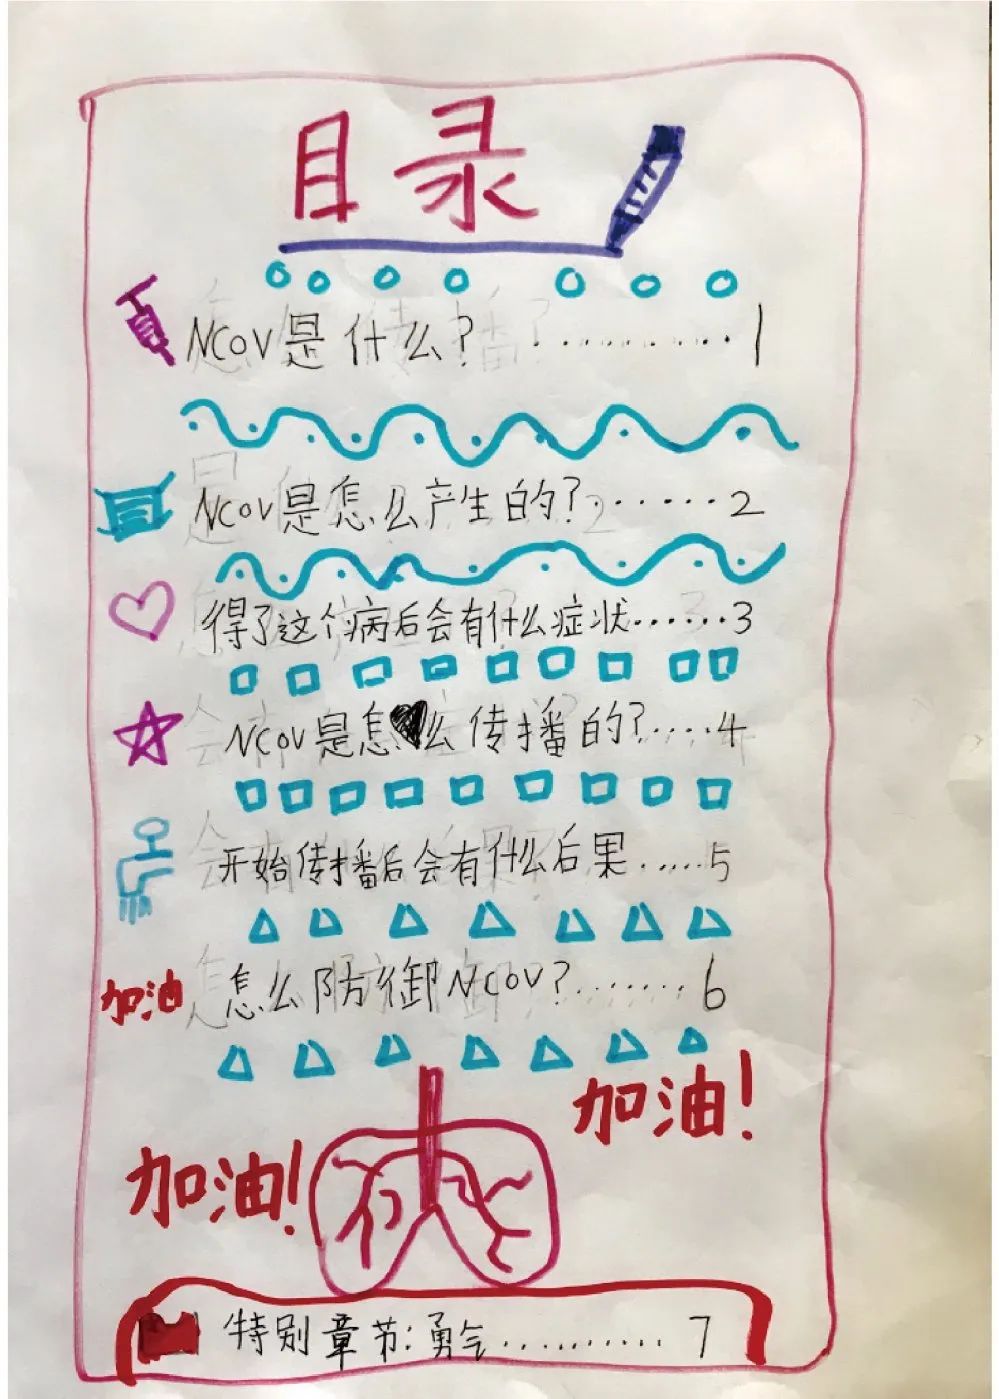 目录
NCOV是什么? ..........1
NCOV是怎么产生的?.......2
得了这个病后会有什么症状......3
NCOV是怎么传播的?.....4
开始传播后会有什么后果.....5
加油 怎么防御NCOV?........6
加油!
加油!
特别章节:勇气..........7